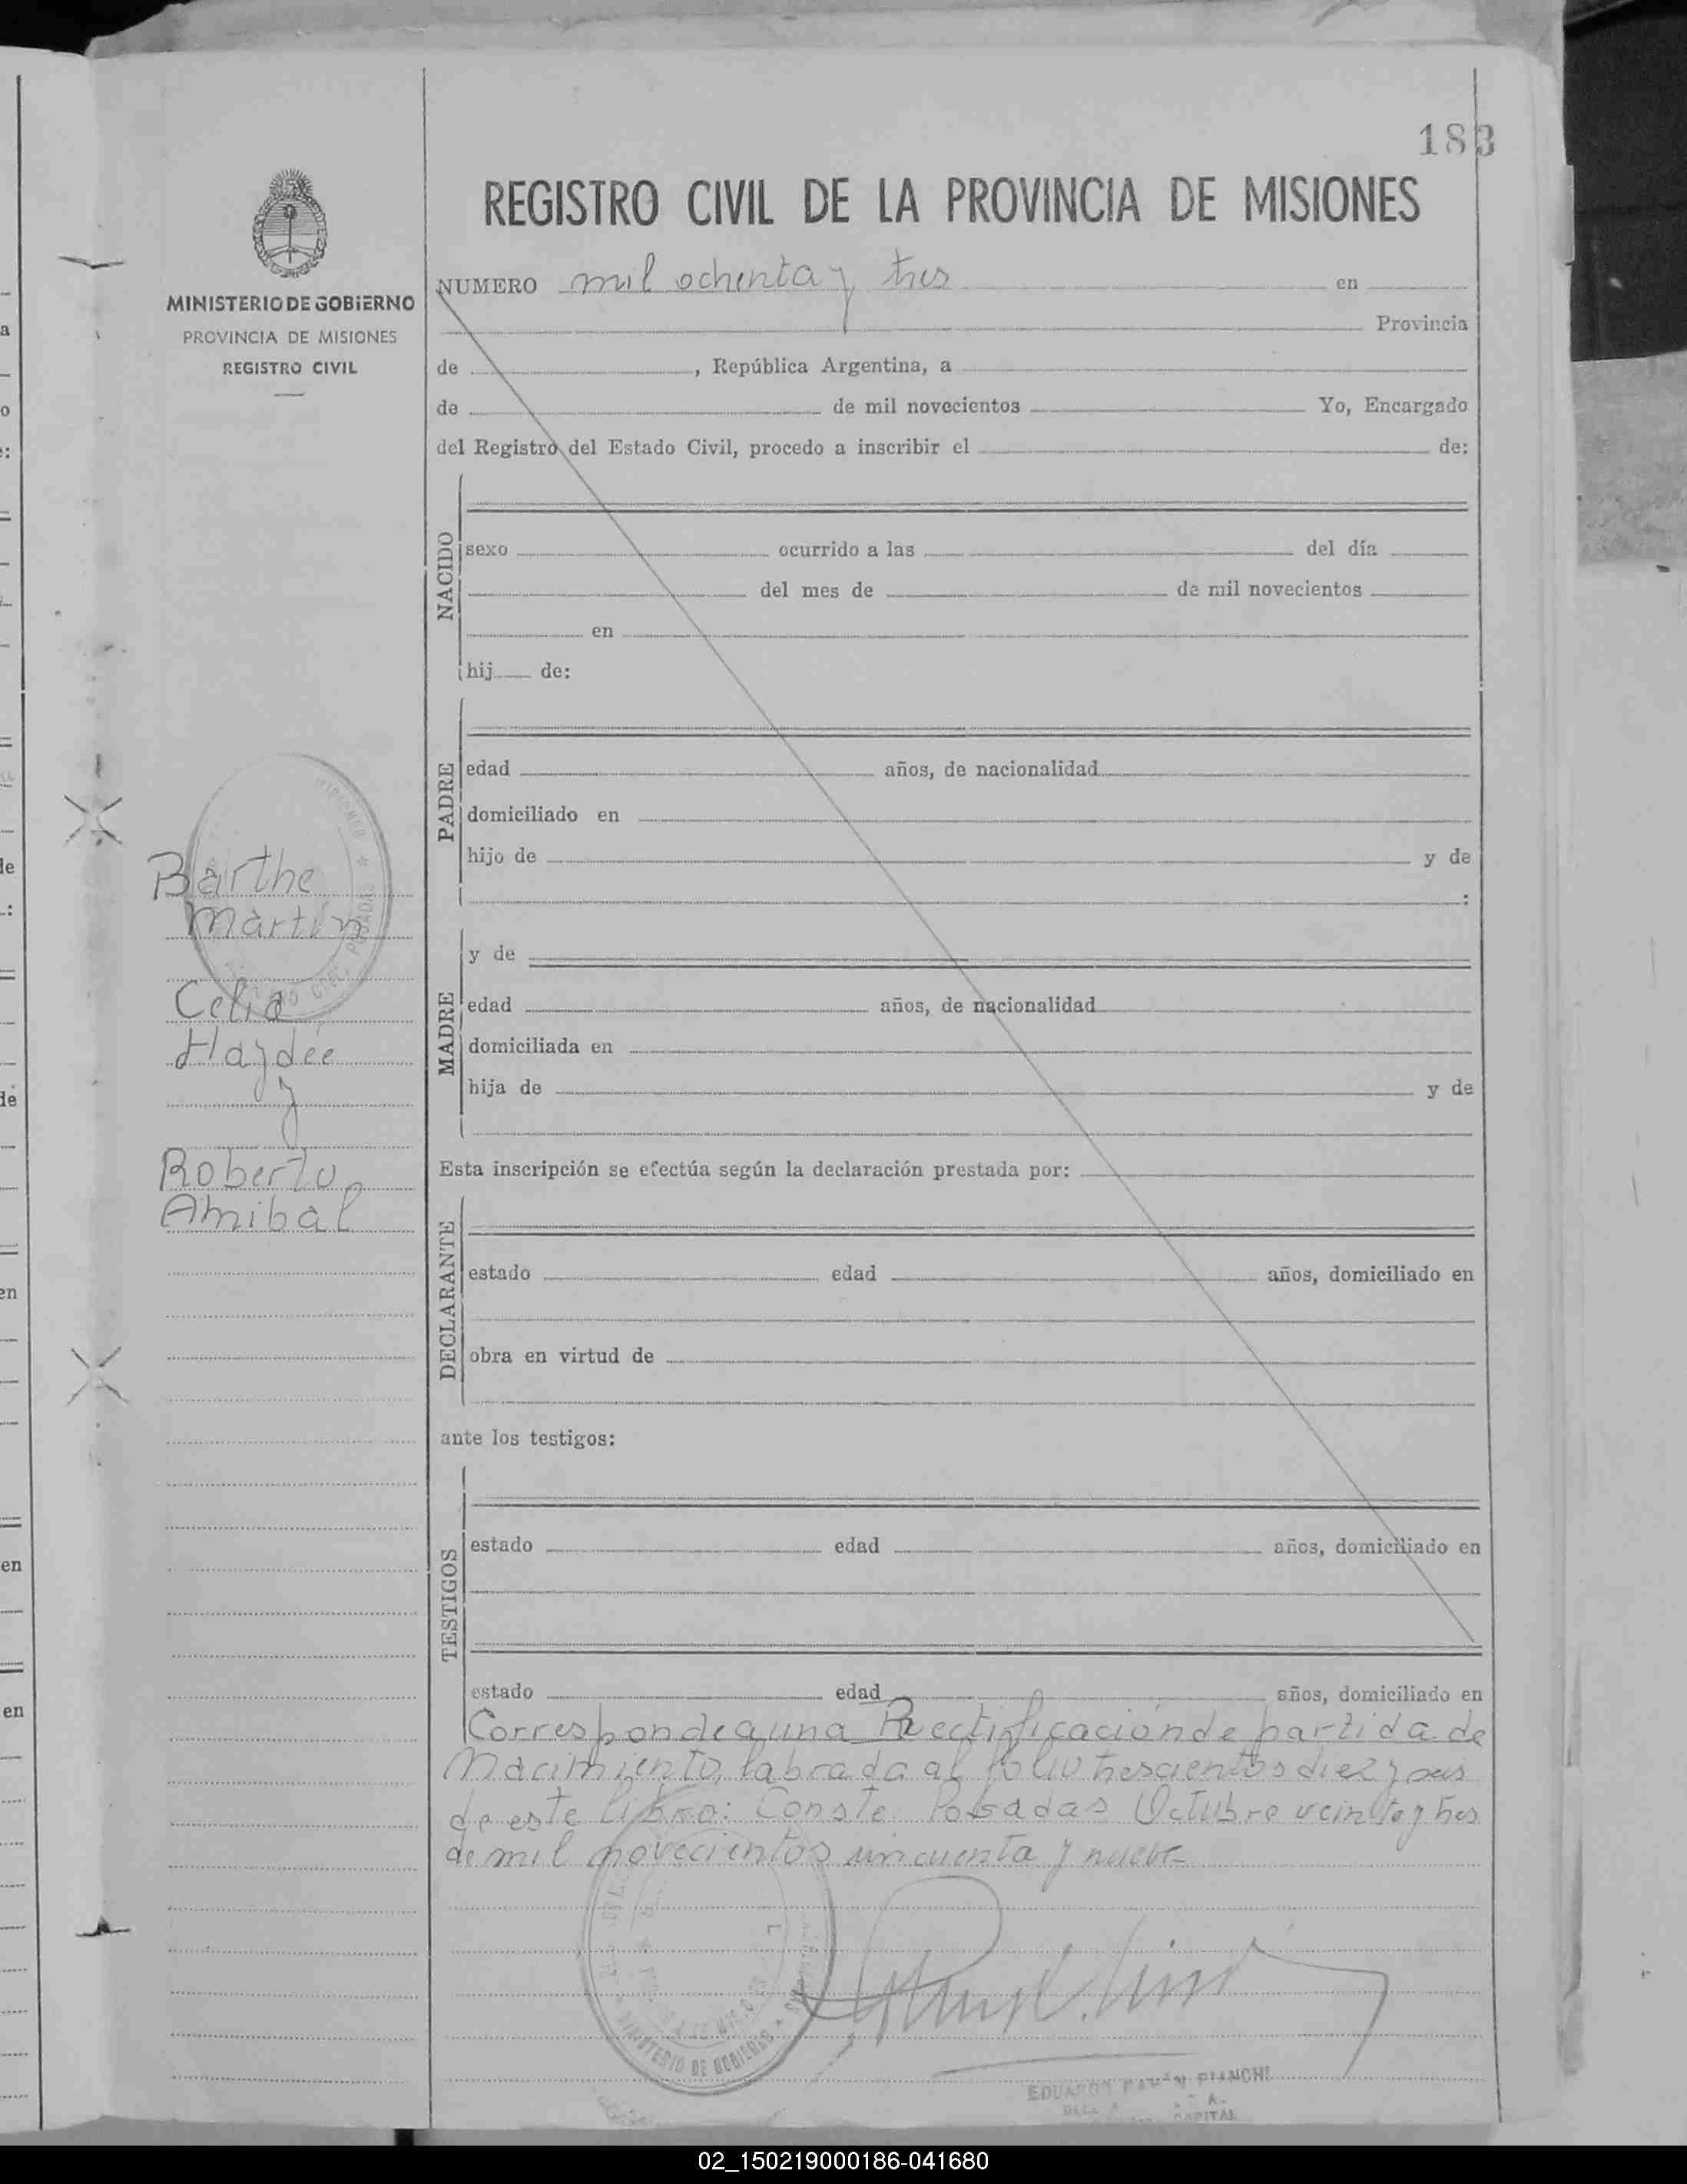 183
REGISTRO CIVIL DE LA PROVINCIA DE MISIONES
MINISTERIO DE GOBIERNO
PROVINCIA DE MISIONES
REGISTRO CIVIL
NUMERO mil ochenta y tres en
Provincia
de , República Argentina, a
de de mil novecientos Yo, Encargado
del Registro del Estado Civil, procedo a inscribir el de:
NACIDO
sexo ocurrido a las del día
del mes de de mil novecientos
en
hij de:
PADRE
edad años, de nacionalidad
domiciliado en
hijo de y de
:
Barthe
Martín
Celia
Haydée
y
Roberto
Anibal
MADRE
y de
edad años, de nacionalidad
domiciliada en
hija de y de
Esta inscripción se efectúa según la declaración prestada por:
DECLARANTE
estado edad años, domiciliado en
obra en virtud de
ante los testigos:
TESTIGOS
estado edad años, domiciliado en
estado edad años, domiciliado en
Corresponde a una Rectificación de partida de
Nacimiento, labrada al folio trescientos diez y seis
de este libro: Conste. Posadas Octubre veinte y tres
de mil novecientos cincuenta y nueve
MINISTERIO DE GOBIERNO
EDUARDO BIANCHI
CAPITAL
02_150219000186-041680